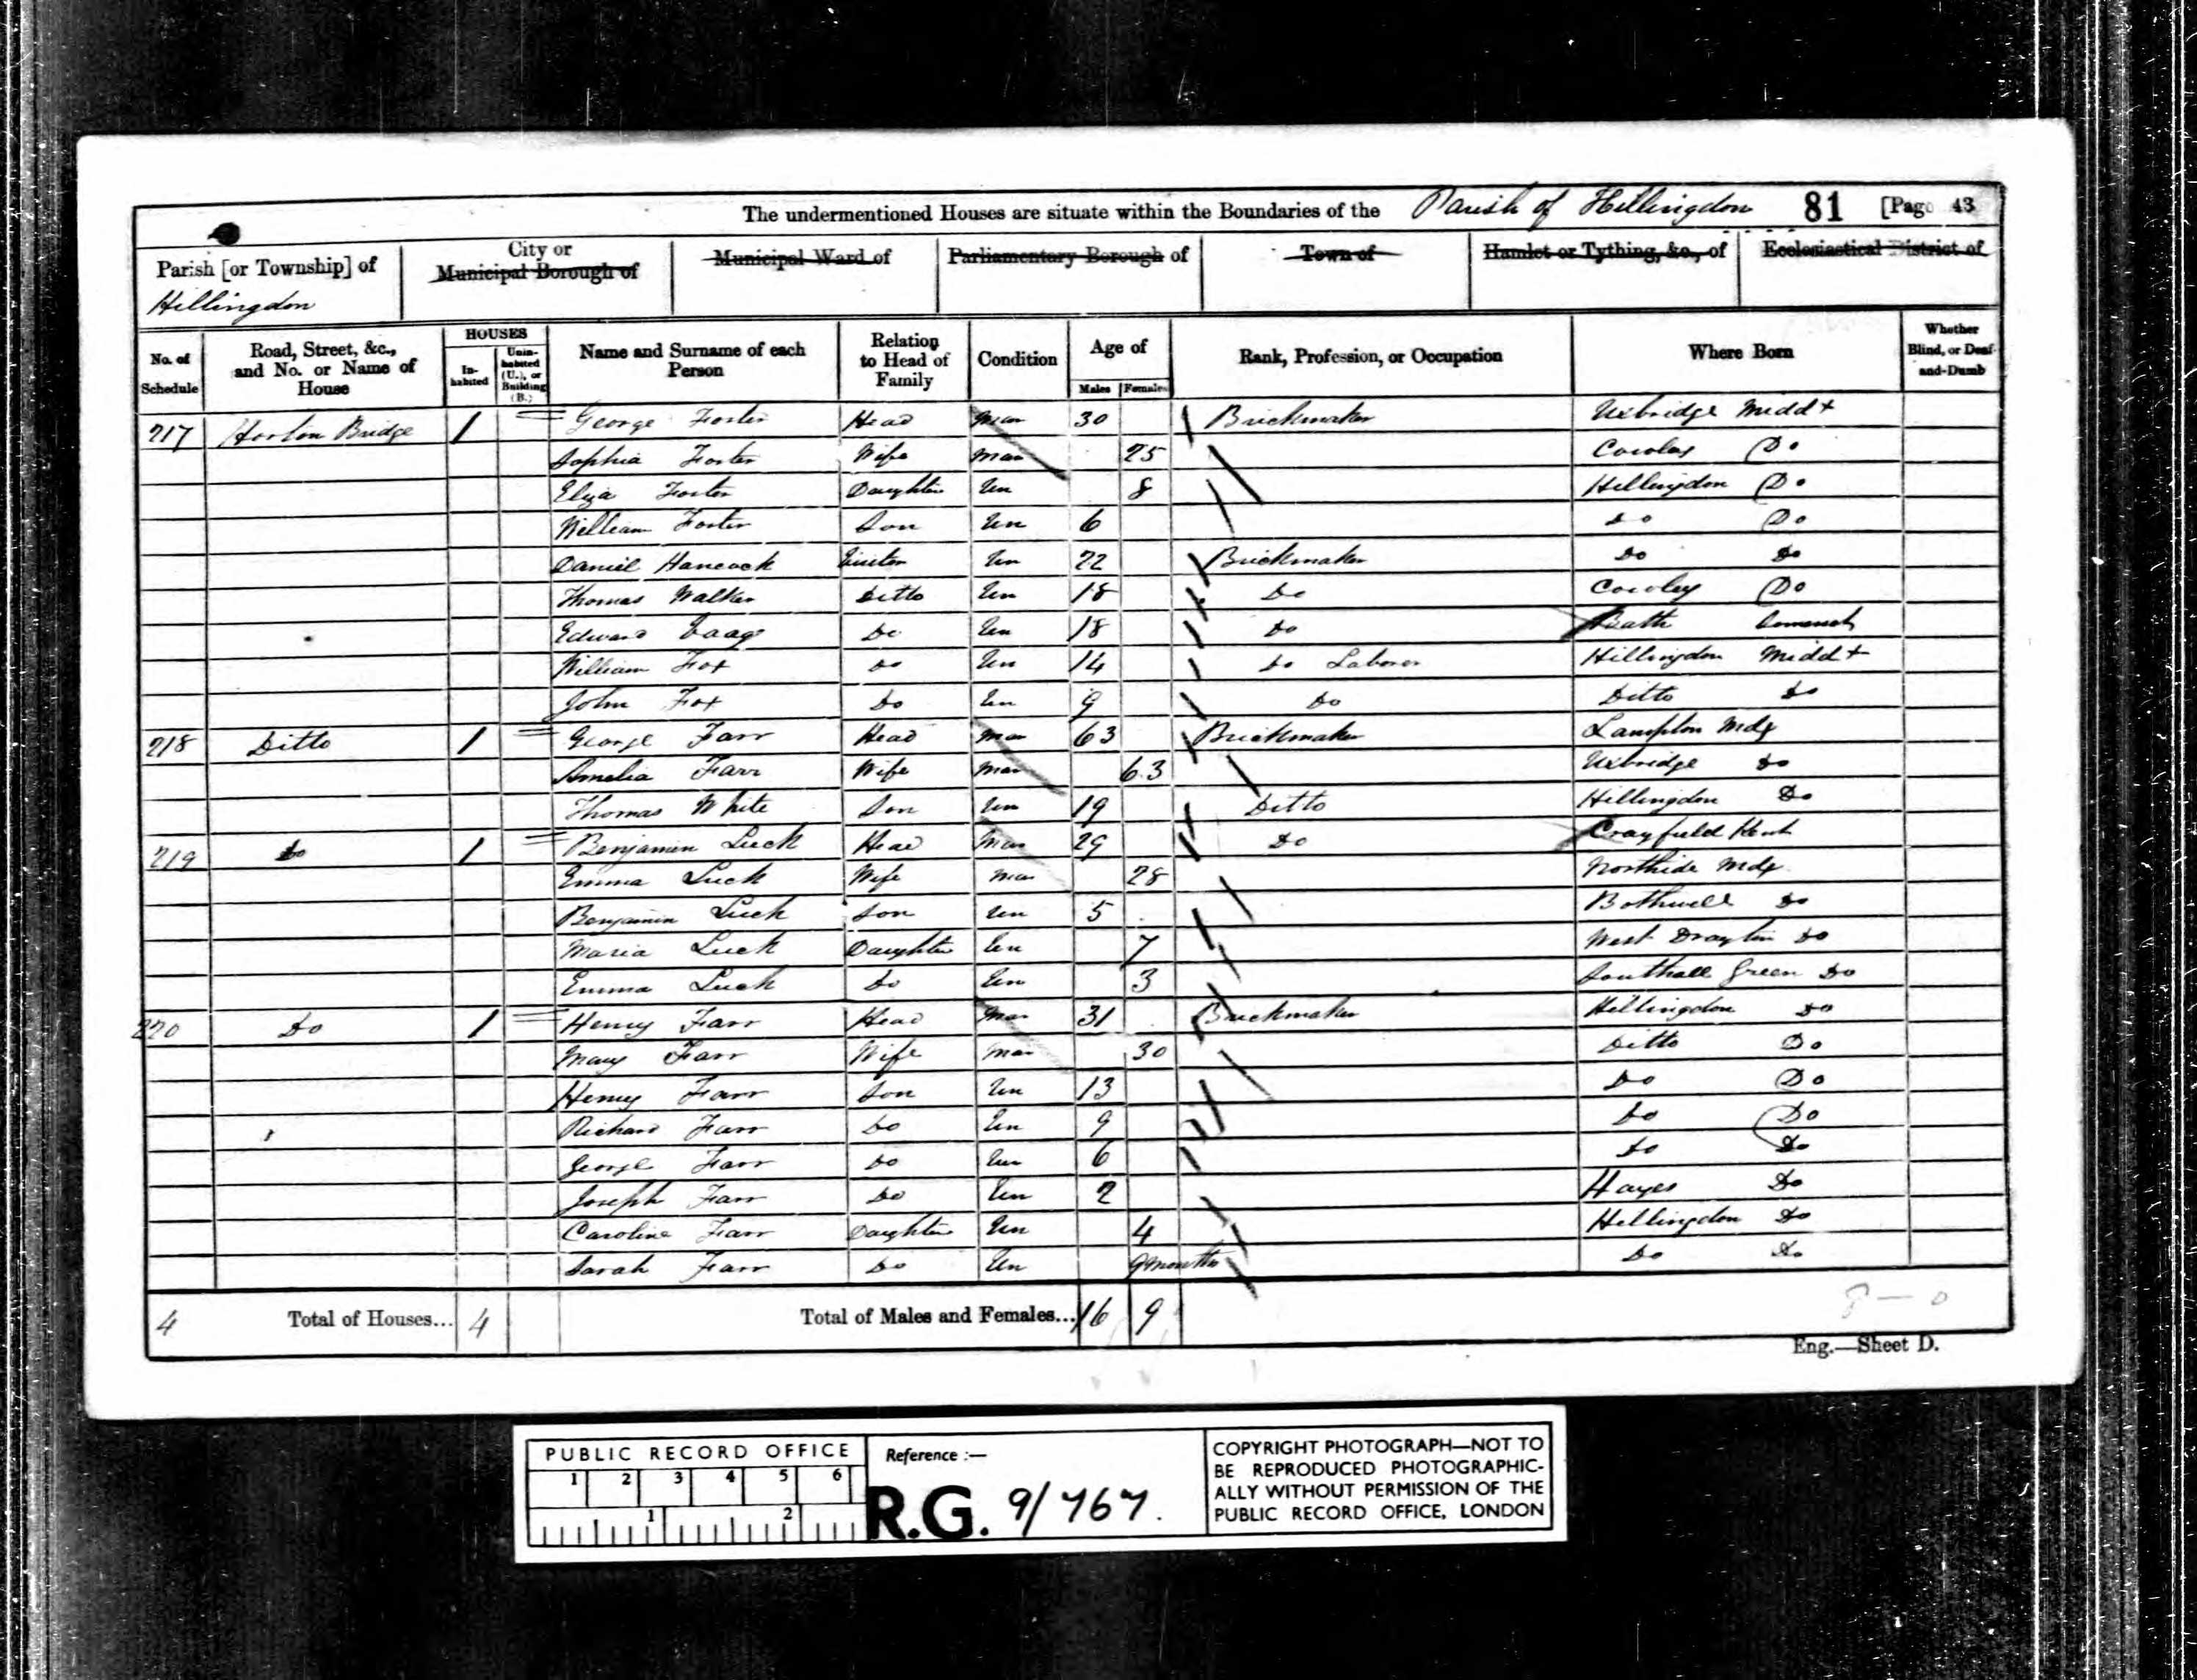 The undermentioned Houses are situate within the Boundaries of the Parish of Hillingdon 81 [Page 43
Parish [or Township] of Hillingdon
City or Municipal Borough of
Municipal Ward of
Parliamentary Borough of
Town of
Hamlet or Tything, &c., of
Ecclesiastical District of
No. of Schedule
Road, Street, &c., and No. or Name of House
HOUSES
In-habited
Unin-habited (U.), or Building (B.)
Name and Surname of each Person
Relation to Head of Family
Condition
Age of
Males Females
Rank, Profession, or Occupation
Where Born
Whether Blind, or Deaf-and-Dumb
217 Horton Bridge 1 George Foster Head Mar 30 Brickmaker Uxbridge Middx
Sophia Foster Wife Mar 25 Cowley Do
Eliza Foster Daughter Un 8 Hillingdon Do
William Foster Son Un 6 Do Do
Daniel Hancock Un 22 Brickmaker Do Do
Thomas Walker Ditto Un 18 Do Cowley Do
Edward Do Un 18 Do Bath Somerset
William Fox Do Un 14 Do Laborer Hillingdon Middx
John Fox Do Un 9 Do Ditto Do
218 Ditto 1 George Farr Head Mar 63 Brickmaker Lampton Mdx
Amelia Farr Wife Mar 63 Uxbridge Do
Thomas White Son Un 19 Ditto Hillingdon Do
219 Do 1 Benjamin Luck Head Mar 29 Do Crayfield Kent
Emma Luck Wife Mar 28 Northide Mdx
Benjamin Luck Son Un 5 Bothwell Do
Maria Luck Daughter Un 7 West Drayton Do
Emma Luck Do Un 3 Southall Green Do
220 Do 1 Henry Farr Head Mar 31 Brickmaker Hillingdon Do
Mary Farr Wife Mar 30 Ditto Do
Henry Farr Son Un 13 Do Do
Richard Farr Do Un 9 Do Do
George Farr Do Un 6 Do Do
Joseph Farr Do Un 2 Hayes Do
Caroline Farr Daughter Un 4 Hillingdon Do
Sarah Farr Do Un 9 months Do Do
4 Total of Houses... 4 Total of Males and Females... 16 9
Eng.—Sheet D.
PUBLIC RECORD OFFICE
1 2 3 4 5 6
1 2
Reference :—
R.G. 9/767.
COPYRIGHT PHOTOGRAPH—NOT TO
BE REPRODUCED PHOTOGRAPHIC-
ALLY WITHOUT PERMISSION OF THE
PUBLIC RECORD OFFICE, LONDON